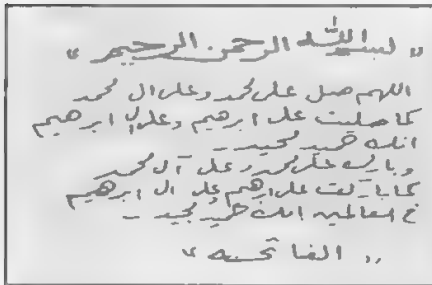 « بسم الله الرحمن الرحيم »
اللهم صل على محمد وعلى ال محمد
كما صليت على ابرهيم وعلى ال ابرهيم
انك حميد مجيد --
وبارك على محمد وعلى آل محمد
كما باركت على ابرهيم وعلى ال ابرهيم
في العالمين انك حميد مجيد --
,, الفاتحه »